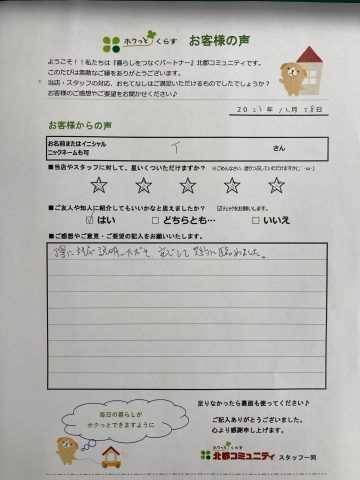 ホクっとくらす お客様の声
ようこそ！！私たちは『暮らしをつなぐパートナー』北都コミュニティです。
このたびは素敵なご縁をありがとうございます。
当店・スタッフの対応、おもてなしはご満足いただけるものでしたでしょうか？
お客様のご感想やご要望をお聞かせください♪
2023年12月28日
お客様からの声
お名前またはイニシャル
ニックネームも可
T さん
■当店やスタッフに対して、星いくつついただけますか？ ※ごめんなさい、塗りつぶしていただけますか(;´･ω･)
☆ ☆ ☆ ☆ ☆
■ご友人や知人に紹介してもいいかなと思えましたか？ ☑チェックをお願いします。
☑ はい □ どちらとも… □ いいえ
■ご感想やご意見・ご要望の記入をお願いします。
丁寧に対応、説明いただき、安心して契約に臨めました。
足りなかったら裏面も使ってください♪
毎日の暮らしが
ホクっとできますように
ご記入ありがとうございました。
心より感謝申し上げます。
ホクっとくらす
北都コミュニティ スタッフ一同